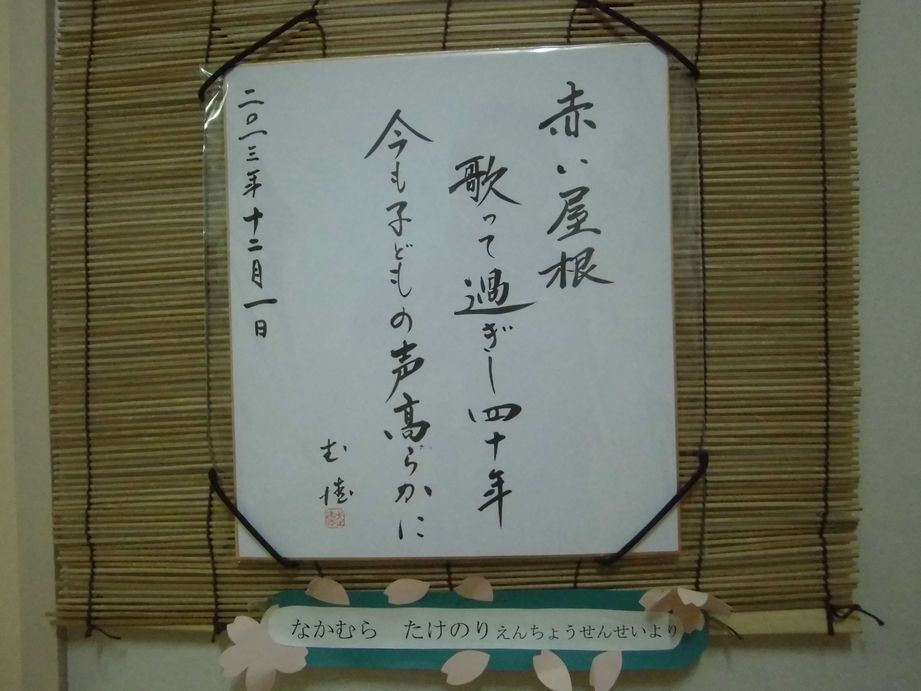 赤い屋根
歌って過ぎし四十年
今も子どもの声高らかに
二〇一三年十二月一日
なかむら　たけのりえんちょうせんせいより